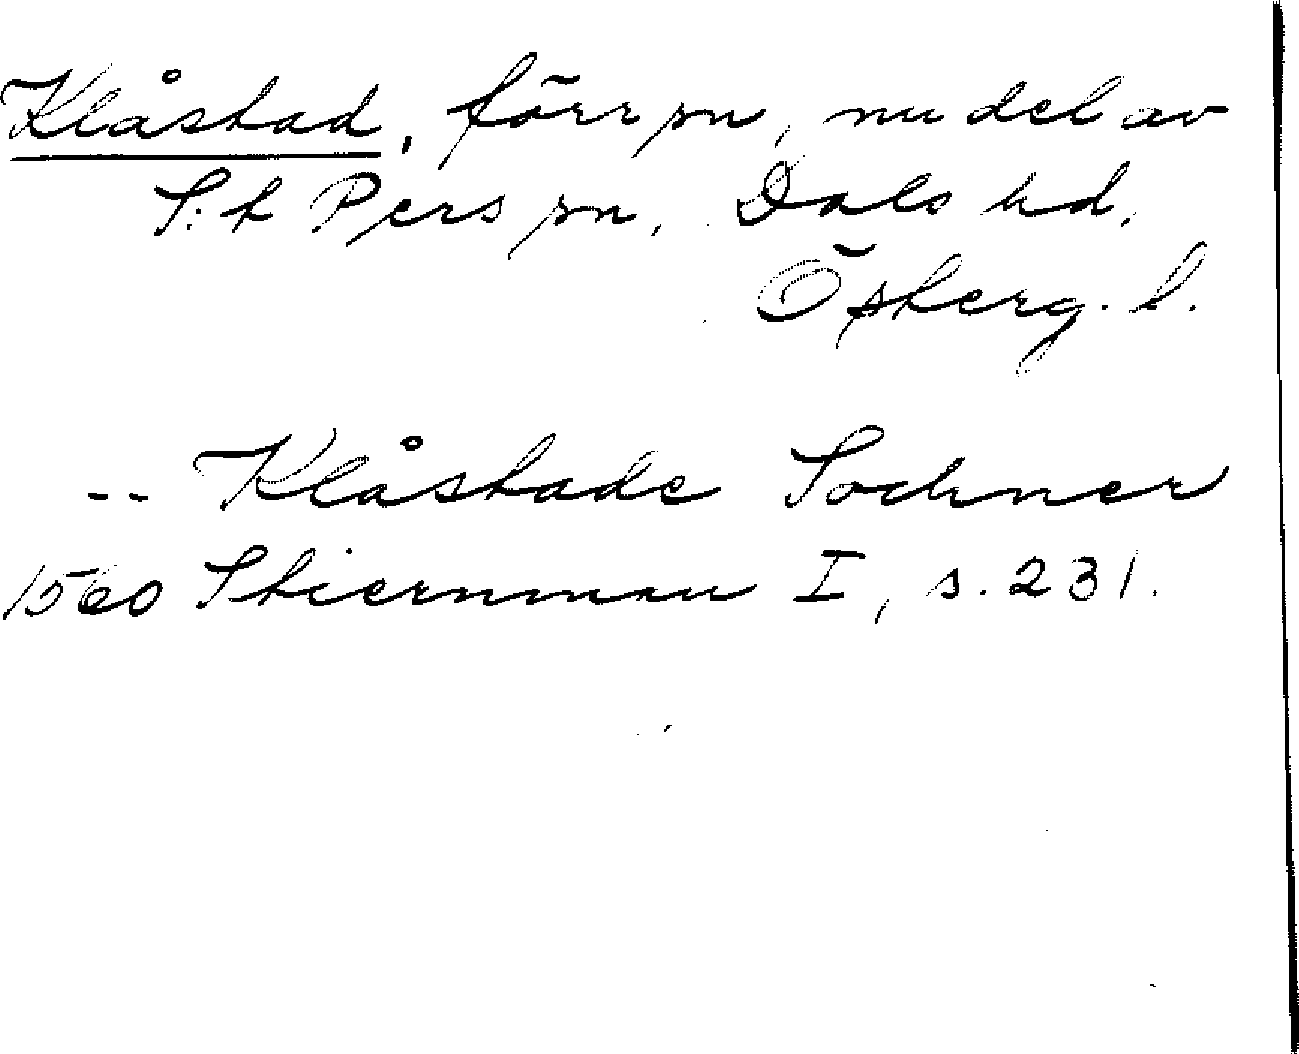 Klåstad, förr sn, nu del av
S:t Pers sn, Dals hd,
Österg. l.
-- Klåstade Sochner
1560 Stiernman I, s. 231.